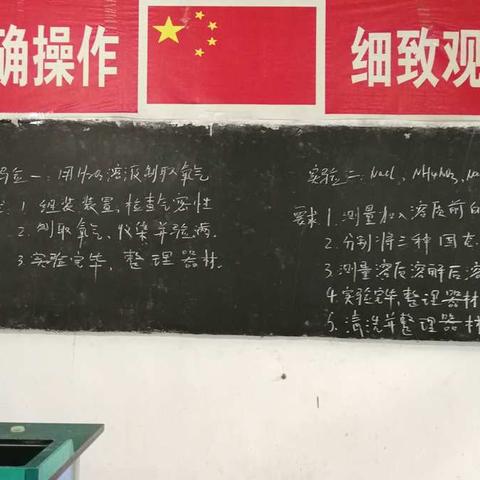 确操作
细致观
实验一：用H₂O₂溶液制取氧气
1. 组装装置、检查气密性
2. 制取氧气、收集并验满.
3. 实验完毕,整理器材.
实验二: NaCl、NH₄NO₃、Na
要求 1. 测量加入溶质前的
2. 分别将三种固态
3. 测量溶质溶解后溶
4. 实验完毕,整理器材
5. 清洗并整理器材